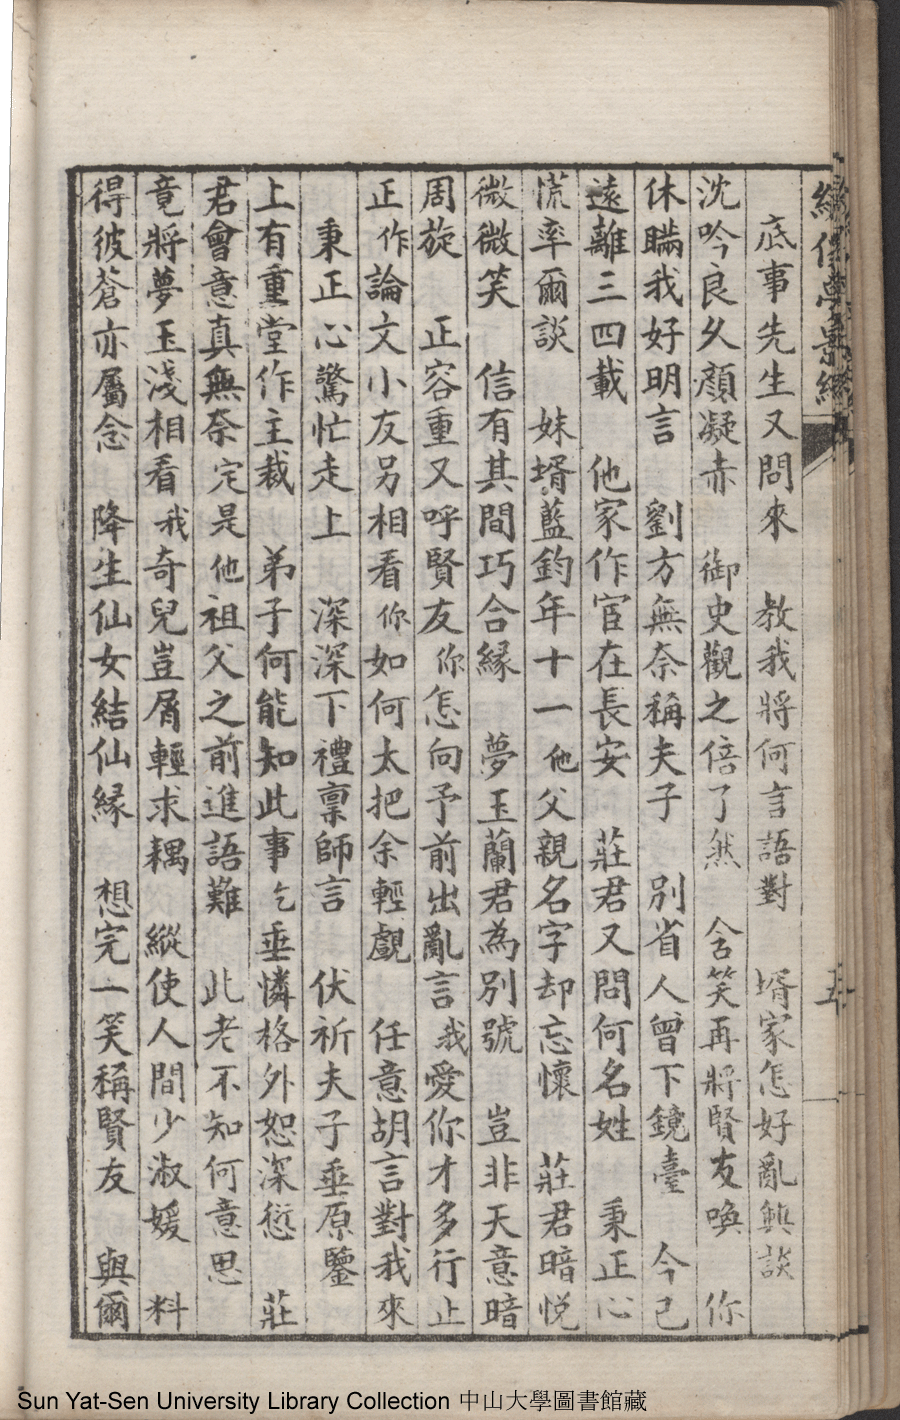 底事先生又問來　教我將何言語對　壻家怎好亂與談
沈吟良久顏凝赤　御史觀之倍了然　含笑再將賢友喚　你
休瞞我好明言　劉方無奈稱夫子　別省人曾下鏡臺　今已
遠離三四載　他家作宦在長安　莊君又問何名姓　秉正心
慌率爾談　妹壻藍鈞年十一　他父親名字却忘懷　莊君暗悦
微微笑　信有其間巧合縁　夢玉蘭君為別號　豈非天意暗
周旋　正容重又呼賢友　你怎向予前出亂言　我愛你才多行止
正　作論文小友另相看　你如何太把余輕覷　任意胡言對我來
秉正心驚忙走上　深深下禮稟師言　伏祈夫子垂原鑒
上有重堂作主裁　弟子何能知此事　乞垂憐格外恕深愆　莊
君會意真無奈　定是他祖父之前進語難　此老不知何意思
竟將夢玉淺相看　我奇兒豈屑輕求耦　縱使人間少淑媛　料
得彼蒼亦屬念　降生仙女結仙縁　想完一笑稱賢友　與爾
Sun Yat-Sen University Library Collection 中山大學圖書館藏